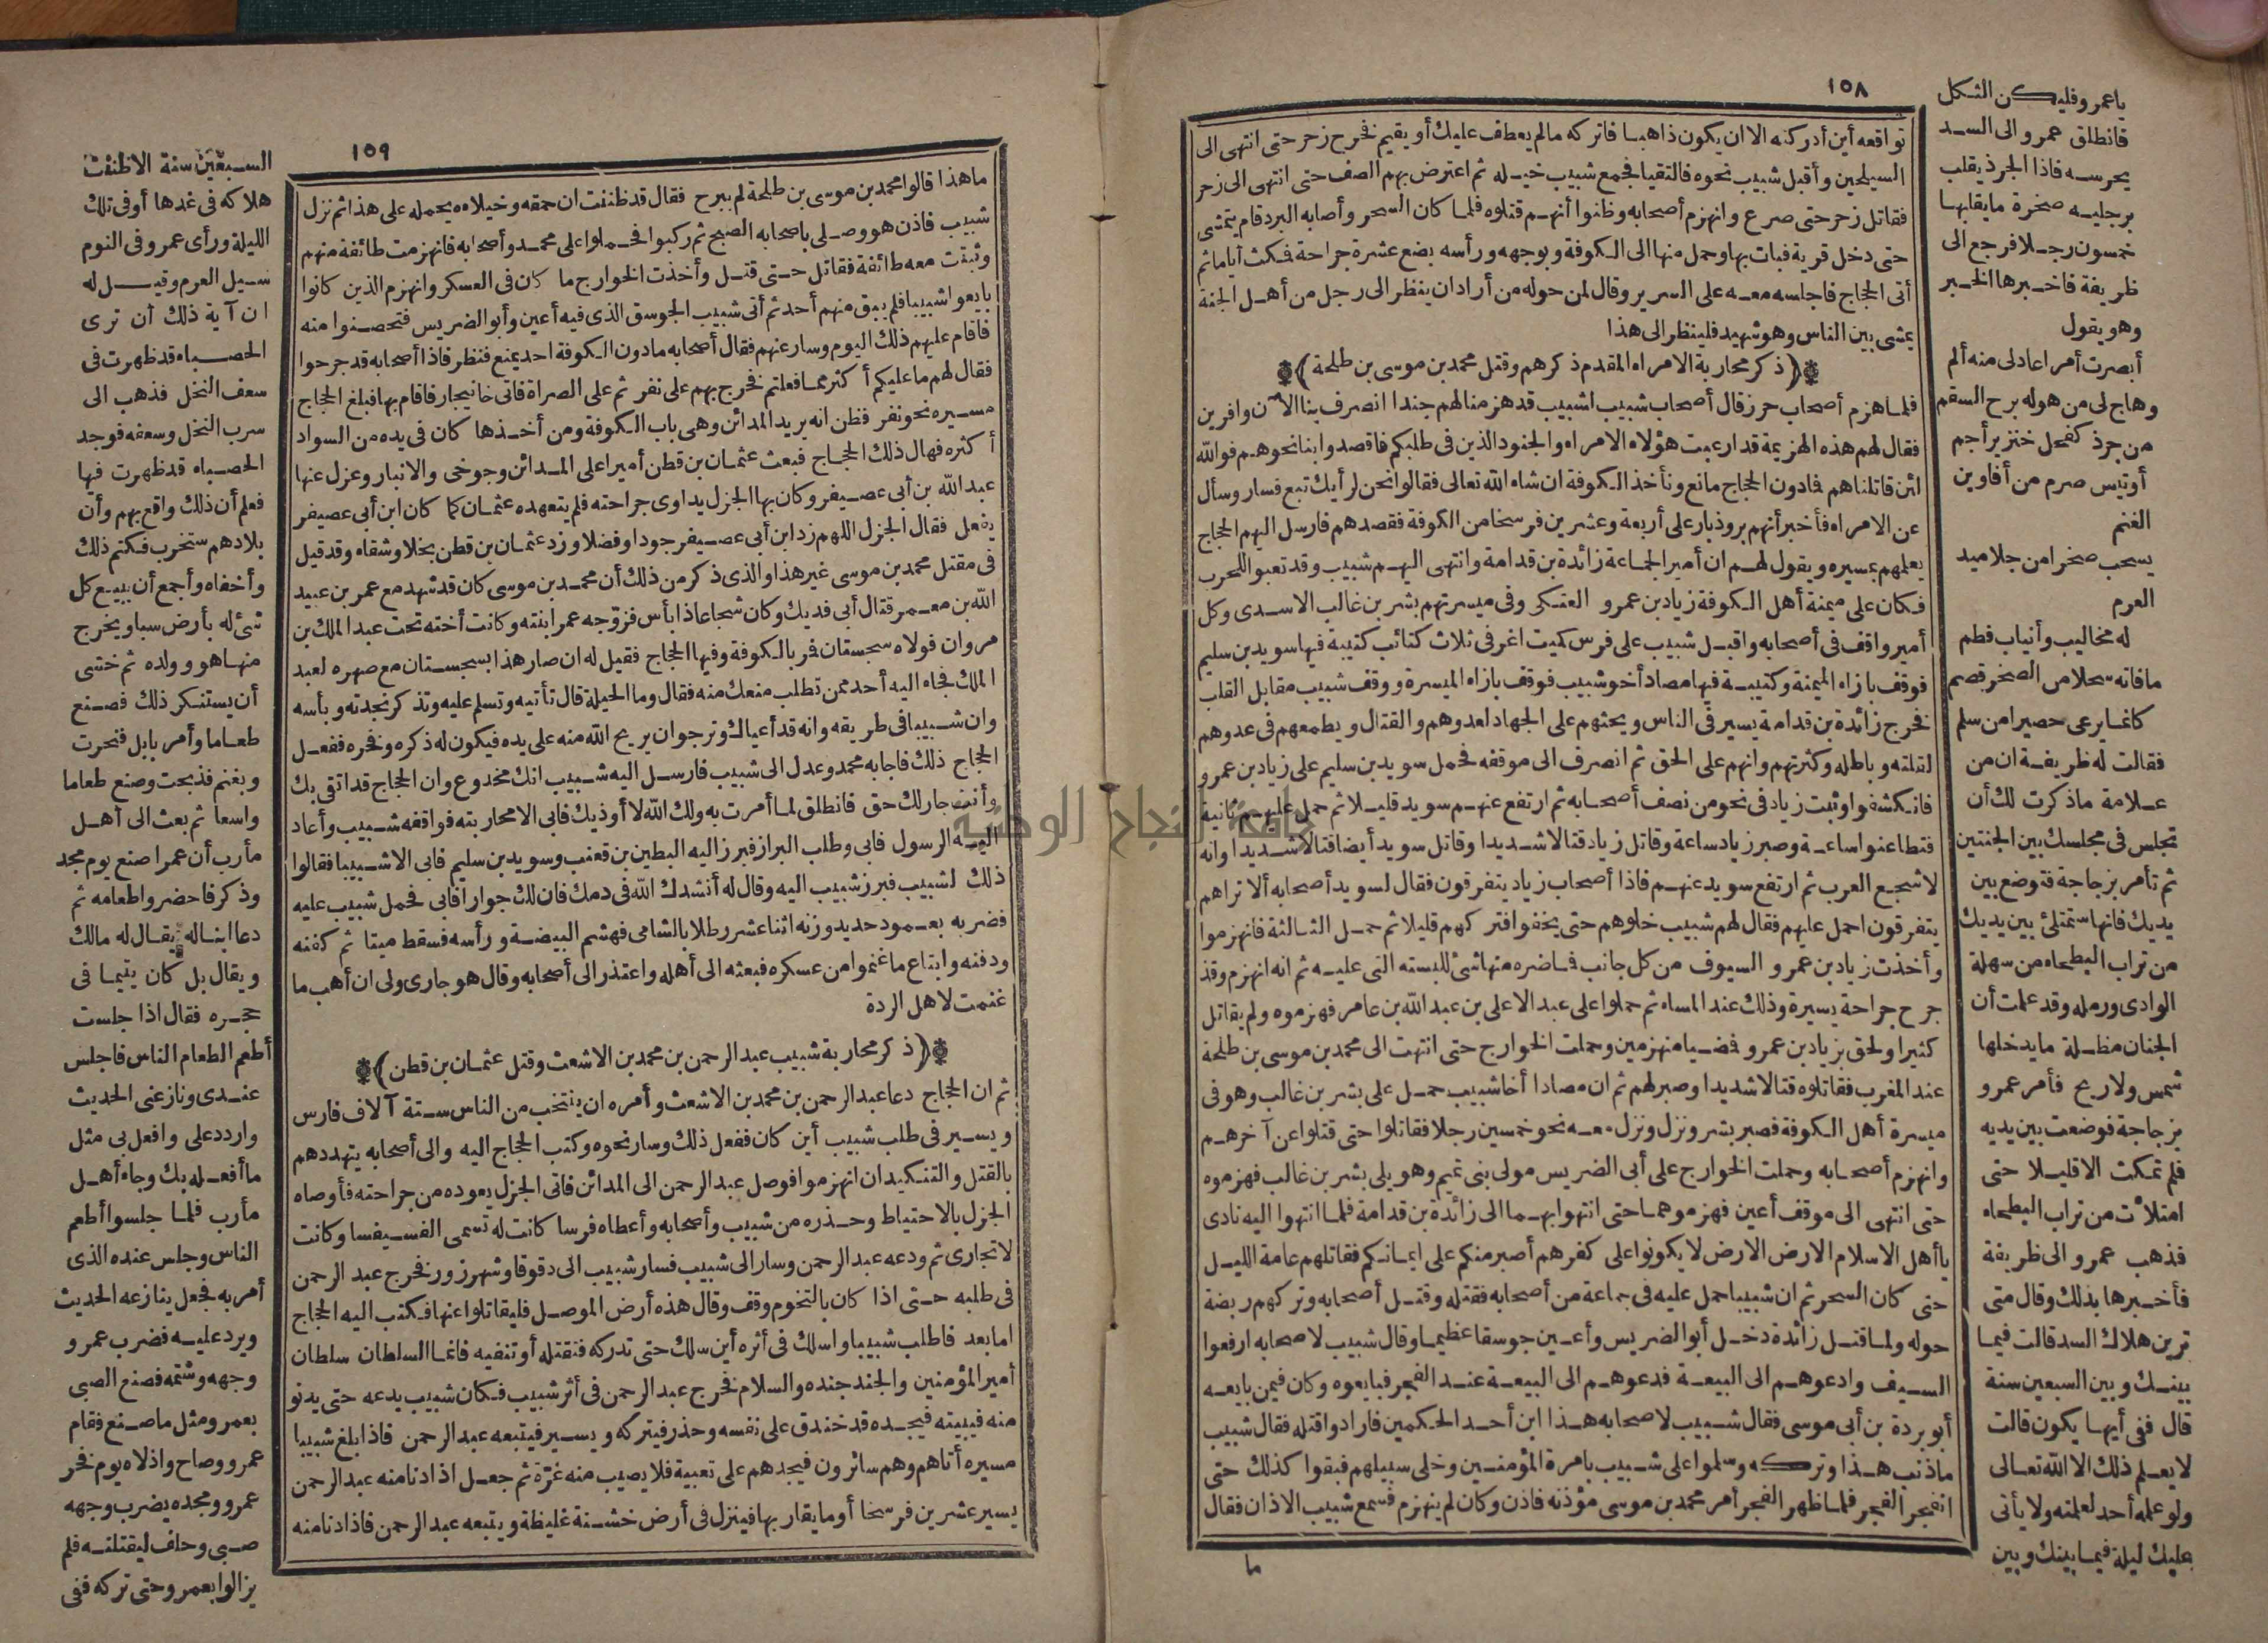 ١٥٨
تواقعه أين أدركته الا ان يكون ذاهبا فاتركه مالم يعطف عليك أو يقيم نخرج زحر حتى انتهى الى
السيلحين وأقبل شبيب نحوه فالتقيا فجمع شبيب خيله ثم اعترض بهم الصف حتى انتهى الى زحر
فقاتل زحر حتى صرع وانهزم أصحابه وظنوا أنهم قتلوه فلما كان السحر وأصابه البرد قام يتمشى
حتى دخل قرية فبات بها وحمل منها الى الكوفة وبوجهه ورأسه بضع عشرة جراحة فمكث أياما ثم
أتى الحجاج فاجلسه معه على السرير وقال لمن حوله من أراد ان ينظر الى رجل من أهل الجنة
يمشى بين الناس وهو شهيد فلينظر الى هذا
﴿ذكر محاربة الامراء المقدم ذكرهم وقتل محمد بن موسى بن طلحة﴾
فلما هزم أصحاب زحر قال أصحاب شبيب لشبيب قد هزمنا لهم جندا انصرف بنا الآن وافرين
فقال لهم هذه الهزيمة قد ارعبت هؤلاء الامراء والجنود الذين فى طلبكم فاقصدوا بنا نحوهم فوالله
لئن قاتلناهم فما دون الحجاج مانع ونأخذ الكوفة ان شاء الله تعالى فقالوا نحن لرأيك تبع فسار وسأل
عن الامراء فأخبر أنهم بروذبار على أربعة وعشرين فرسخا من الكوفة فقصدهم فارسل اليهم الحجاج
يعلمهم بمسيره ويقول لهم ان أمير الجماعة زائدة بن قدامة وانتهى اليهم شبيب وقد تعبوا للحرب
فكان على ميمنة أهل الكوفة زياد بن عمرو العتكى وفى ميسرتهم بشر بن غالب الاسدى وكل
أمير واقف فى أصحابه واقبل شبيب على فرس كميت اغر فى ثلاث كتائب كتيبة فيها سويد بن سليم
فوقف بازاء الميمنة وكتيبة فيها مصاد أخو شبيب فوقف بازاء الميسرة ووقف شبيب مقابل القلب
فخرج زائدة بن قدامة يسير فى الناس ويحثهم على الجهاد لعدوهم والقتال ويطمعهم فى عدوهم
لقلته وباطله وكثرتهم وانهم على الحق ثم انصرف الى موقفه فحمل سويد بن سليم على زياد بن عمرو
فانكشفوا وثبت زياد فى نحو من نصف أصحابه ثم ارتفع عنهم سويد قليلا ثم حمل عليهم ثانية
فتطاعنوا ساعة وصبر زياد ساعة وقاتل زياد قتالا شديدا وقاتل سويد أيضا قتالا شديدا وانه
لاشجع العرب ثم ارتفع سويد عنهم فاذا أصحاب زياد يتفرقون فقال لسويد أصحابه ألا تراهم
يتفرقون احمل عليهم فقال لهم شبيب خلوهم حتى يخفوا فتركهم قليلا ثم حمل الثالثة فانهزموا
وأخذت زياد بن عمرو السيوف من كل جانب فما ضره منها شئ للبسته التى عليه ثم انه انهزم وقد
جرح جراحة يسيرة وذلك عند المساء ثم حملوا على عبد الاعلى بن عبد الله بن عامر فهزموه ولم يقاتل
كثيرا ولحق بزياد بن عمرو فمضيا منهزمين وحملت الخوارج حتى انتهت الى محمد بن موسى بن طلحة
عند المغرب فقاتلوه قتالا شديدا وصبر لهم ثم ان مصادا أخا شبيب حمل على بشر بن غالب وهو فى
ميسرة أهل الكوفة فصبر بشر ونزل ونزل معه نحو خمسين رجلا فقاتلوا حتى قتلوا عن آخرهم
وانهزم أصحابه وحملت الخوارج على أبى الضريس مولى بنى تميم وهو يلى بشر بن غالب فهزموه
حتى انتهى الى موقف أعين فهزموهما حتى انتهوا بهما الى زائدة بن قدامة فلما انتهوا اليه نادى
يا أهل الاسلام الارض الارض لا يكونوا على كفرهم أصبر منكم على ايمانكم فقاتلهم عامة الليل
حتى كان السحر ثم ان شبيبا حمل عليه فى جماعة من أصحابه فقتله وقتل أصحابه وتركهم ربضة
حوله ولما قتل زائدة دخل أبو الضريس وأعين جوسقا عظيما وقال شبيب لاصحابه ارفعوا
السيف وادعوهم الى البيعة فدعوهم الى البيعة عند الفجر فبايعوه وكان فيمن بايعه
أبو بردة بن أبى موسى فقال شبيب لاصحابه هذا ابن أحد الحكمين فارادوا قتله فقال شبيب
ماذنب هذا وتركه وسلموا على شبيب بامرة المؤمنين وخلى سبيلهم فبقوا كذلك حتى
انفجر الفجر فلما ظهر الفجر أمر محمد بن موسى مؤذنه فاذن وكان لم ينهزم فسمع شبيب الاذان فقال
ما
يا عمرو فليكن الثكل
فانطلق عمرو الى السد
يحرسه فاذا الجرذ يقلب
برجليه صخرة مايقلبها
خمسون رجلا فرجع الى
ظريفة فاخبرها الخبر
وهو يقول
أبصرت أمرا عادلى منه ألم
وهاج لى من هوله برح السقم
من جرذ كفحل خنزير أجم
أوتيس صرم من أفاوين
الغنم
يسحب صخرا من جلاميد
العرم
له مخاليب وأنياب قطم
مافاته سحلا من الصخر قصم
كانما يرعى حصيرا من سلم
فقالت له ظريفة ان من
علامة ماذكرت لك أن
تجلس فى مجلسك بين الجنتين
ثم تأمر بزجاجة فتوضع بين
يديك فانها ستمتلئ بين يديك
من تراب البطحاء من سهلة
الوادى ورمله وقد علمت أن
الجنان مظلة مايدخلها
شمس ولا ريح فأمر عمرو
بزجاجة فوضعت بين يديه
فلم تمكث الا قليلا حتى
امتلأت من تراب البطحاء
فذهب عمرو الى ظريفة
فأخبرها بذلك وقال متى
ترين هلاك السد قالت فيما
بينك وبين السبعين سنة
قال ففى أيها يكون قالت
لا يعلم ذلك الا الله تعالى
ولو علمه أحد لعلمته ولا يأتى
عليك ليلة فيما بينك وبين
١٥٩
ماهذا قالوا محمد بن موسى بن طلحة لم يبرح فقال قد ظننت ان حمقه وخيلاءه يحمله على هذا ثم نزل
شبيب فاذن هو وصلى باصحابه الصبح ثم ركبوا فحملوا على محمد وأصحابه فانهزمت طائفة منهم
وثبتت معه طائفة فقاتل حتى قتل وأخذت الخوارج ما كان فى العسكر وانهزم الذين كانوا
بايعوا شبيبا فلم يبق منهم أحد ثم أتى شبيب الجوسق الذى فيه أعين وأبو الضريس فتحصنوا منه
فاقام عليهم ذلك اليوم وسار عنهم فقال أصحابه مادون الكوفة احد يمنع فنظر فاذا أصحابه قد جرحوا
فقال لهم ماعليكم أكثر مما فعلتم فخرج بهم على نفر ثم على الصراة فاتى خانيجار فاقام بها فبلغ الحجاج
مسيره نحو نفر فظن انه يريد المدائن وهى باب الكوفة ومن أخذها كان فى يده من السواد
أكثره فهال ذلك الحجاج فبعث عثمان بن قطن أميرا على المدائن وجوخى والانبار وعزل عنها
عبد الله بن أبى عصيفر وكان بها الجزل يداوى جراحته فلم يتعهده عثمان كما كان ابن أبى عصيفر
يفعل فقال الجزل اللهم زد ابن أبى عصيفر جودا وفضلا وزد عثمان بن قطن بخلا وشقاء وقد قيل
فى مقتل محمد بن موسى غير هذا والذى ذكر من ذلك أن محمد بن موسى كان قد شهد مع عمر بن عبيد
الله بن معمر قتال أبى فديك وكان شجاعا ذا بأس فزوّجه عمر ابنته وكانت أخته تحت عبد الملك بن
مروان فولاه سجستان فمر بالكوفة وفيها الحجاج فقيل له ان صار هذا بسجستان مع صهره لعبد
الملك فجاء اليه أحد ممن تطلب منعك منه فقال وما الحيلة قال تأتيه وتسلم عليه وتذكر نجدته وبأسه
وان شبيبا فى طريقه وانه قد أعياك وترجو ان يريح الله منه على يده فيكون له ذكره وفخره ففعل
الحجاج ذلك فاجابه محمد وعدل الى شبيب فارسل اليه شبيب انك مخدوع وان الحجاج قد اتقى بك
وأنت جار لك حق فانطلق لما أمرت به ولك الله لا أوذيك فابى الا محاربته فواقفه شبيب وأعاد
اليه الرسول فابى وطلب البراز فبرز اليه البطين بن قعنب وسويد بن سليم فابى الا شبيبا فقالوا
ذلك لشبيب فبرز شبيب اليه وقال له أنشدك الله فى دمك فان لك جوارا فابى فحمل شبيب عليه
فضربه بعمود حديد وزنه اثنا عشر رطلا بالشامى فهشم البيضة ورأسه فسقط ميتا ثم كفنه
ودفنه وابتاع ماغنموا من عسكره فبعثه الى أهله واعتذر الى أصحابه وقال هو جارى ولى ان أهب ما
غنمت لاهل الردة
﴿ذكر محاربة شبيب عبد الرحمن بن محمد بن الاشعث وقتل عثمان بن قطن﴾
ثم ان الحجاج دعا عبد الرحمن بن محمد بن الاشعث وأمره ان ينتخب من الناس ستة آلاف فارس
ويسير فى طلب شبيب أين كان ففعل ذلك وسار نحوه وكتب الحجاج اليه والى أصحابه يتهددهم
بالقتل والتنكيد ان انهزموا فوصل عبد الرحمن الى المدائن فاتى الجزل يعوده من جراحته فأوصاه
الجزل بالاحتياط وحذره من شبيب وأصحابه وأعطاه فرسا كانت له تسمى الفسيفسا وكانت
لا تجارى ثم ودعه عبد الرحمن وسار الى شبيب فسار شبيب الى دقوقا وشهرزور نخرج عبد الرحمن
فى طلبه حتى اذا كان بالتخوم وقف وقال هذه أرض الموصل فليقاتلوا عنها فكتب اليه الحجاج
اما بعد فاطلب شبيبا واسلك فى أثره أين سلك حتى تدركه فتقتله أو تنفيه فانما السلطان سلطان
أمير المؤمنين والجند جنده والسلام فخرج عبد الرحمن فى أثر شبيب فكان شبيب يدعه حتى يدنو
منه فيبيته فيجده قد خندق على نفسه وحذر فيتركه ويسير فيتبعه عبد الرحمن فاذا بلغ شبيبا
مسيره أتاهم وهم سائرون فيجدهم على تعبية فلا يصيب منه غرّة ثم جعل اذا دنا منه عبد الرحمن
يسير عشرين فرسخا أو مايقاربها فينزل فى أرض خشنة غليظة ويتبعه عبد الرحمن فاذا دنا منه
السبعين سنة الا ظننت
هلاكه فى غدها أو فى تلك
الليلة ورأى عمرو فى النوم
سيل العرم وقيل له
ان آية ذلك أن ترى
الحصباء قد ظهرت فى
سعف النخل فذهب الى
سرب النخل وسعفه فوجد
الحصباء قد ظهرت فيها
فعلم أن ذلك واقع بهم وأن
بلادهم ستخرب فكتم ذلك
وأخفاه وأجمع أن يبيع كل
شئ له بأرض سبا ويخرج
منها هو وولده ثم خشى
أن يستنكر ذلك فصنع
طعاما وأمر بابل فنحرت
وبغنم فذبحت وصنع طعاما
واسعا ثم بعث الى أهل
مأرب أن عمرا صنع يوم مجد
وذكر فاحضروا طعامه ثم
دعا ابنا له يقال له مالك
ويقال بل كان يتيما فى
حجره فقال اذا جلست
أطعم الطعام الناس فاجلس
عندى ونازعنى الحديث
واردد على وافعل بى مثل
ما أفعله بك وجاء أهل
مأرب فلما جلسوا أطعم
الناس وجلس عنده الذى
أمر به فجعل ينازعه الحديث
ويرد عليه فضرب عمرو
وجهه وشتمه فصنع الصبى
بعمرو مثل ماصنع فقام
عمرو وصاح واذلاه يوم فخر
عمرو ومجده يضرب وجهه
صبى وحلف ليقتلنه فلم
يزالوا بعمرو حتى تركه ففى
جامعة النجاح الوطنية